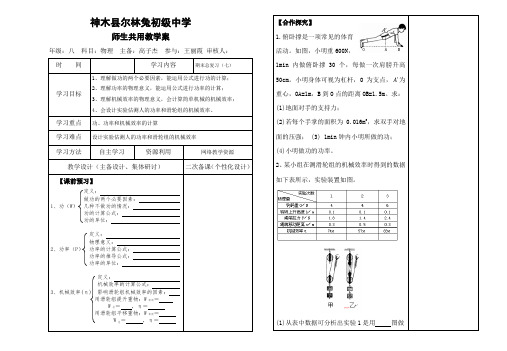 神木县尔林兔初级中学
师生共用教学案
年级：八 科目：物理 主备：高子杰 参与：王丽霞 审核人：
时 间
学习内容
期末总复习（七）
学习目标
1、理解做功的两个必要因素，能运用公式进行功的计算；
2、理解功率的物理意义，能运用公式进行功率的计算；
3、理解机械效率的物理意义，会计算简单机械的机械效率；
4、会设计实验估测人的功率和滑轮组的机械效率。
学习重点
功、功率和机械效率的计算
学习难点
设计实验估测人的功率和滑轮组的机械效率
学习方法
自主学习
资源利用
网络教学资源
教学设计（主备设计、集体研讨）
二次备课(个性化设计)
【课前预习】
定义：
做功的两个必要因素：
1、功（W）
几种不做功的情况：
功的计算公式：
功的单位：
定义：
物理意义：
2、功率（P）
功率的计算公式：
功率的推导公式：
功率的单位：
定义：
机械效率的计算公式：
3、机械效率(η)
影响滑轮组机械效率的因素：
用滑轮组提升重物：W
用滑轮组平移重物：W
【合作探究】
1.俯卧撑是一项常见的体育
活动。如图，小明重600N，
1min 内做俯卧撑 30 个，每做一次肩膀升高
50cm。小明身体可视为杠杆，O 为支点，A为
重心，OA=1m，B到O点的距离OB=1.5m。求：
(1)地面对手的支持力；
(2)若每个手掌的面积为 0.016m²，求双手对地
面的压强； (3) 1min钟内小明所做的功；
(4)小明做功的功率。
2、某小组在测滑轮组的机械效率时得到的数据
如下表所示，实验装置如图：
实验次数 1 2 3
物理量
钩码重G/N 4 4 6
钩码上升高度h/m 0.1 0.1 0.1
绳端拉力F/N 1.8 1.4 2.4
绳端移动距离s/m 0.3 0.5 0.3
机械效率η 74% 57% 83%
甲 乙
(1)从表中数据可分析出实验1是用 图做